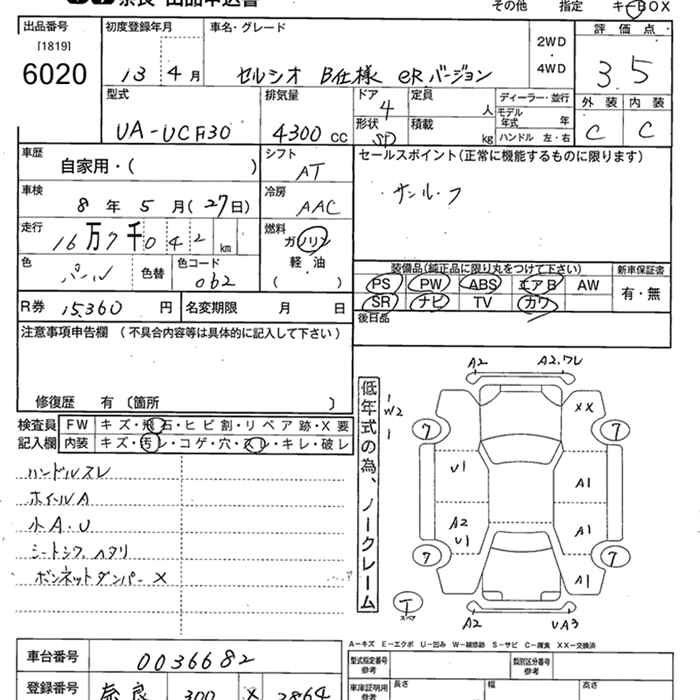 奈良 出品申込書 その他 指定 キーBOX
出品番号 初度登録年月 車名・グレード 評価点
[1819] 2WD
6020 13 年 4 月 セルシオ B仕様 eRバージョン ・ 3.5
4WD
型式 排気量 ドア 定員 ディーラー・並行 外装 内装
UA-UCF30 4300 CC 4 人 モデル年式 年 C C
形状 積載 kg ハンドル 左・右
SD
車歴 シフト セールスポイント(正常に機能するものに限ります)
自家用・( ) AT
車検 冷房 サンルーフ
8 年 5 月(27日) AAC
走行 燃料
16万7千042 km ガソリン
色 色替 色コード 軽・油 装備品(純正品に限り丸をつけて下さい) 新車保証書
パール 062 ( ) PS PW ABS エアB AW 有・無
R券 15,360 円 名変期限 月 日 SR ナビ TV カワ
注意事項申告欄 (不具合内容等は具体的に記入して下さい) 後日品
修復歴 有〔箇所 〕
検査員 FW キズ・飛石・ヒビ割・リペア跡・X要
記入欄 内装 キズ・汚レ・コゲ・穴・スレ・キレ・破レ
ハンドルスレ
ホイルA
小A.U
シートシワ ヘタリ
ボンネットダンパー X
低年式の為、ノークレーム
A2 A2.ワレ
W2 XX
7 7
U1 A1
A2 A1
U1
7 7
A1
T
スペア
A2 UA3
A-キズ E-エクボ U-凹み W-補修跡 S-サビ C-腐食 XX-交換済
車台番号 0036682 型式指定番号 参考 類別区分番号 参考
登録番号 奈良 300 X 2864 車庫証明用 参考 長さ 幅 高さ